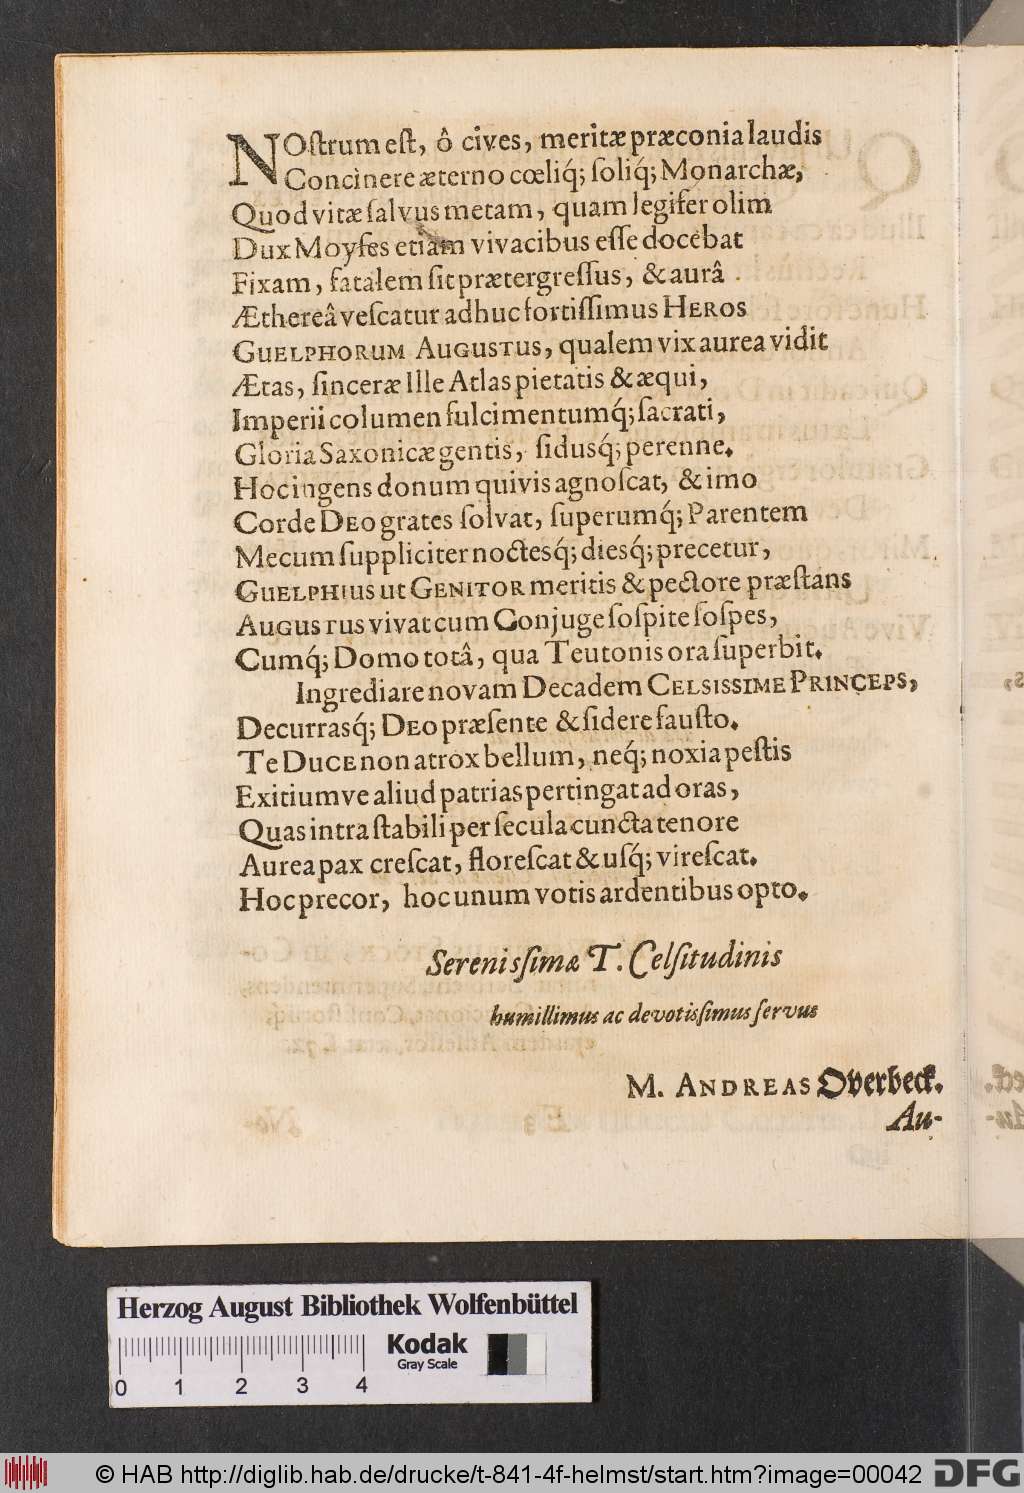 NOſtrum eſt, ô cives, meritæ præconia laudis
Concinere æterno cœliq́; ſoliq́; Monarchæ,
Quod vitæ ſalvus metam, quam legifer olim
Dux Moyſes etiam vivacibus eſſe docebat
Fixam, fatalem ſit prætergreſſus, & aurâ
Æthereâ veſcatur adhuc fortiſſimus HEROS
GUELPHORUM AUGUSTUS, qualem vix aurea vidit
Ætas, ſinceræ Ille Atlas pietatis & æqui,
Imperii columen fulcimentumq́; ſacrati,
Gloria Saxonicæ gentis, ſidusq́; perenne.
Hoc ingens donum quivis agnoſcat, & imo
Corde DEO grates ſolvat, ſuperumq́; Parentem
Mecum ſuppliciter noctesq́; diesq́; precetur,
GUELPHIUS ut GENITOR meritis & pectore præſtans
AUGUSTUS vivat cum Conjuge ſoſpite ſoſpes,
Cumq́; Domo totâ, qua Teutonis ora ſuperbit.
Ingrediare novam Decadem CELSISSIME PRINCEPS,
Decurrasq́; DEO præſente & ſidere fauſto.
Te DUCE non atrox bellum, neq́; noxia peſtis
Exitiumve aliud patrias pertingat ad oras,
Quas intra ſtabili per ſecula cuncta tenore
Aurea pax creſcat, floreſcat & uſq́; vireſcat.
Hoc precor, hoc unum votis ardentibus opto.
Sereniſsimæ T. Celſitudinis
humillimus ac devotiſsimus ſervus
M. ANDREAS Overbeck.
Au-
Herzog August Bibliothek Wolfenbüttel
Kodak
Gray Scale
0 1 2 3 4
© HAB http://diglib.hab.de/drucke/t-841-4f-helmst/start.htm?image=00042 DFG